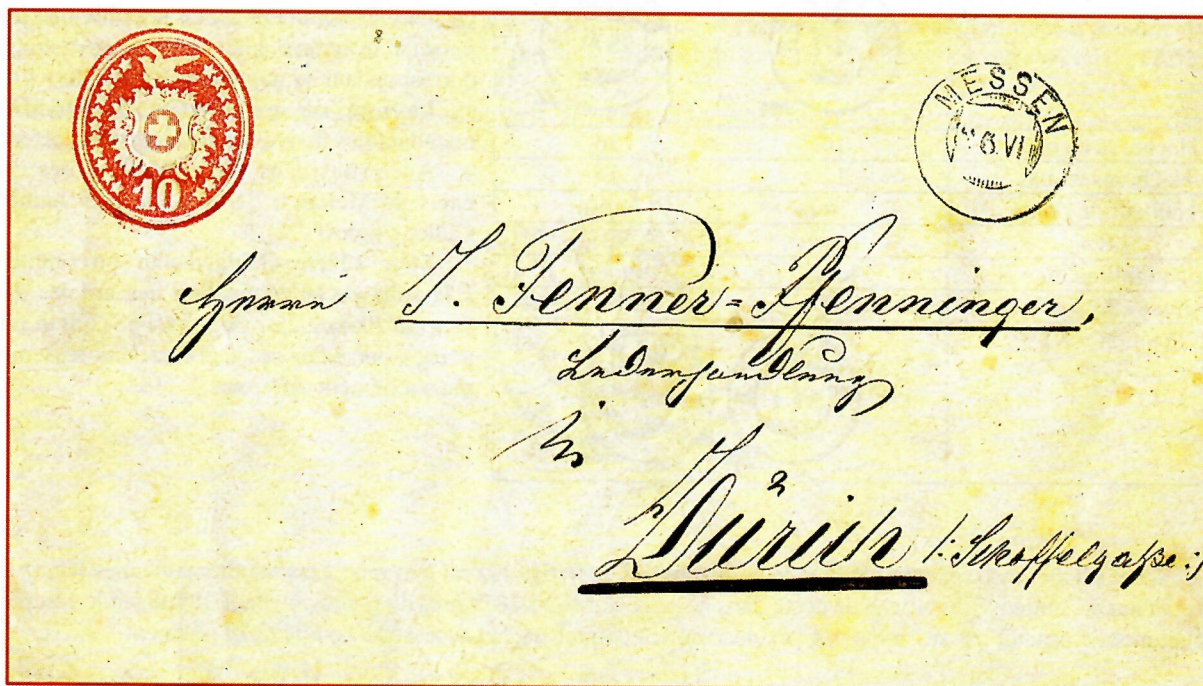 10
MESSEN
6.VI
Herrn J. Fenner=Pfenninger,
Lederhandlung
in
Zürich /:Schoffelgaße:/